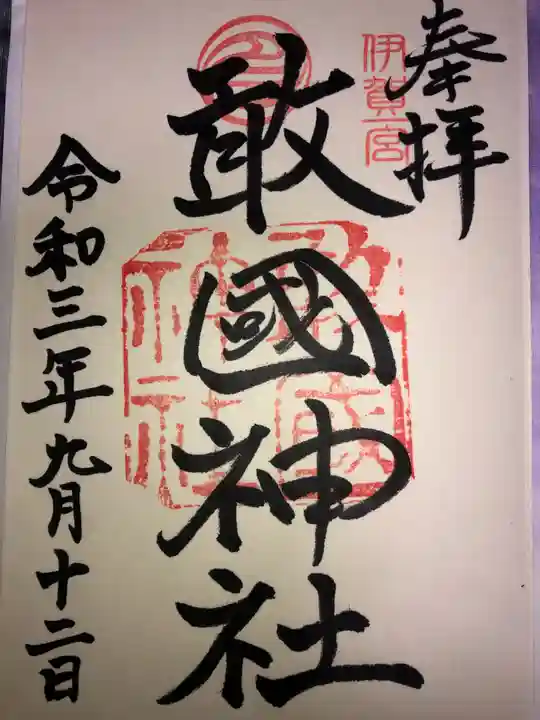 奉拝
伊賀一宮
敢國神社
敢國神社
令和三年九月十二日